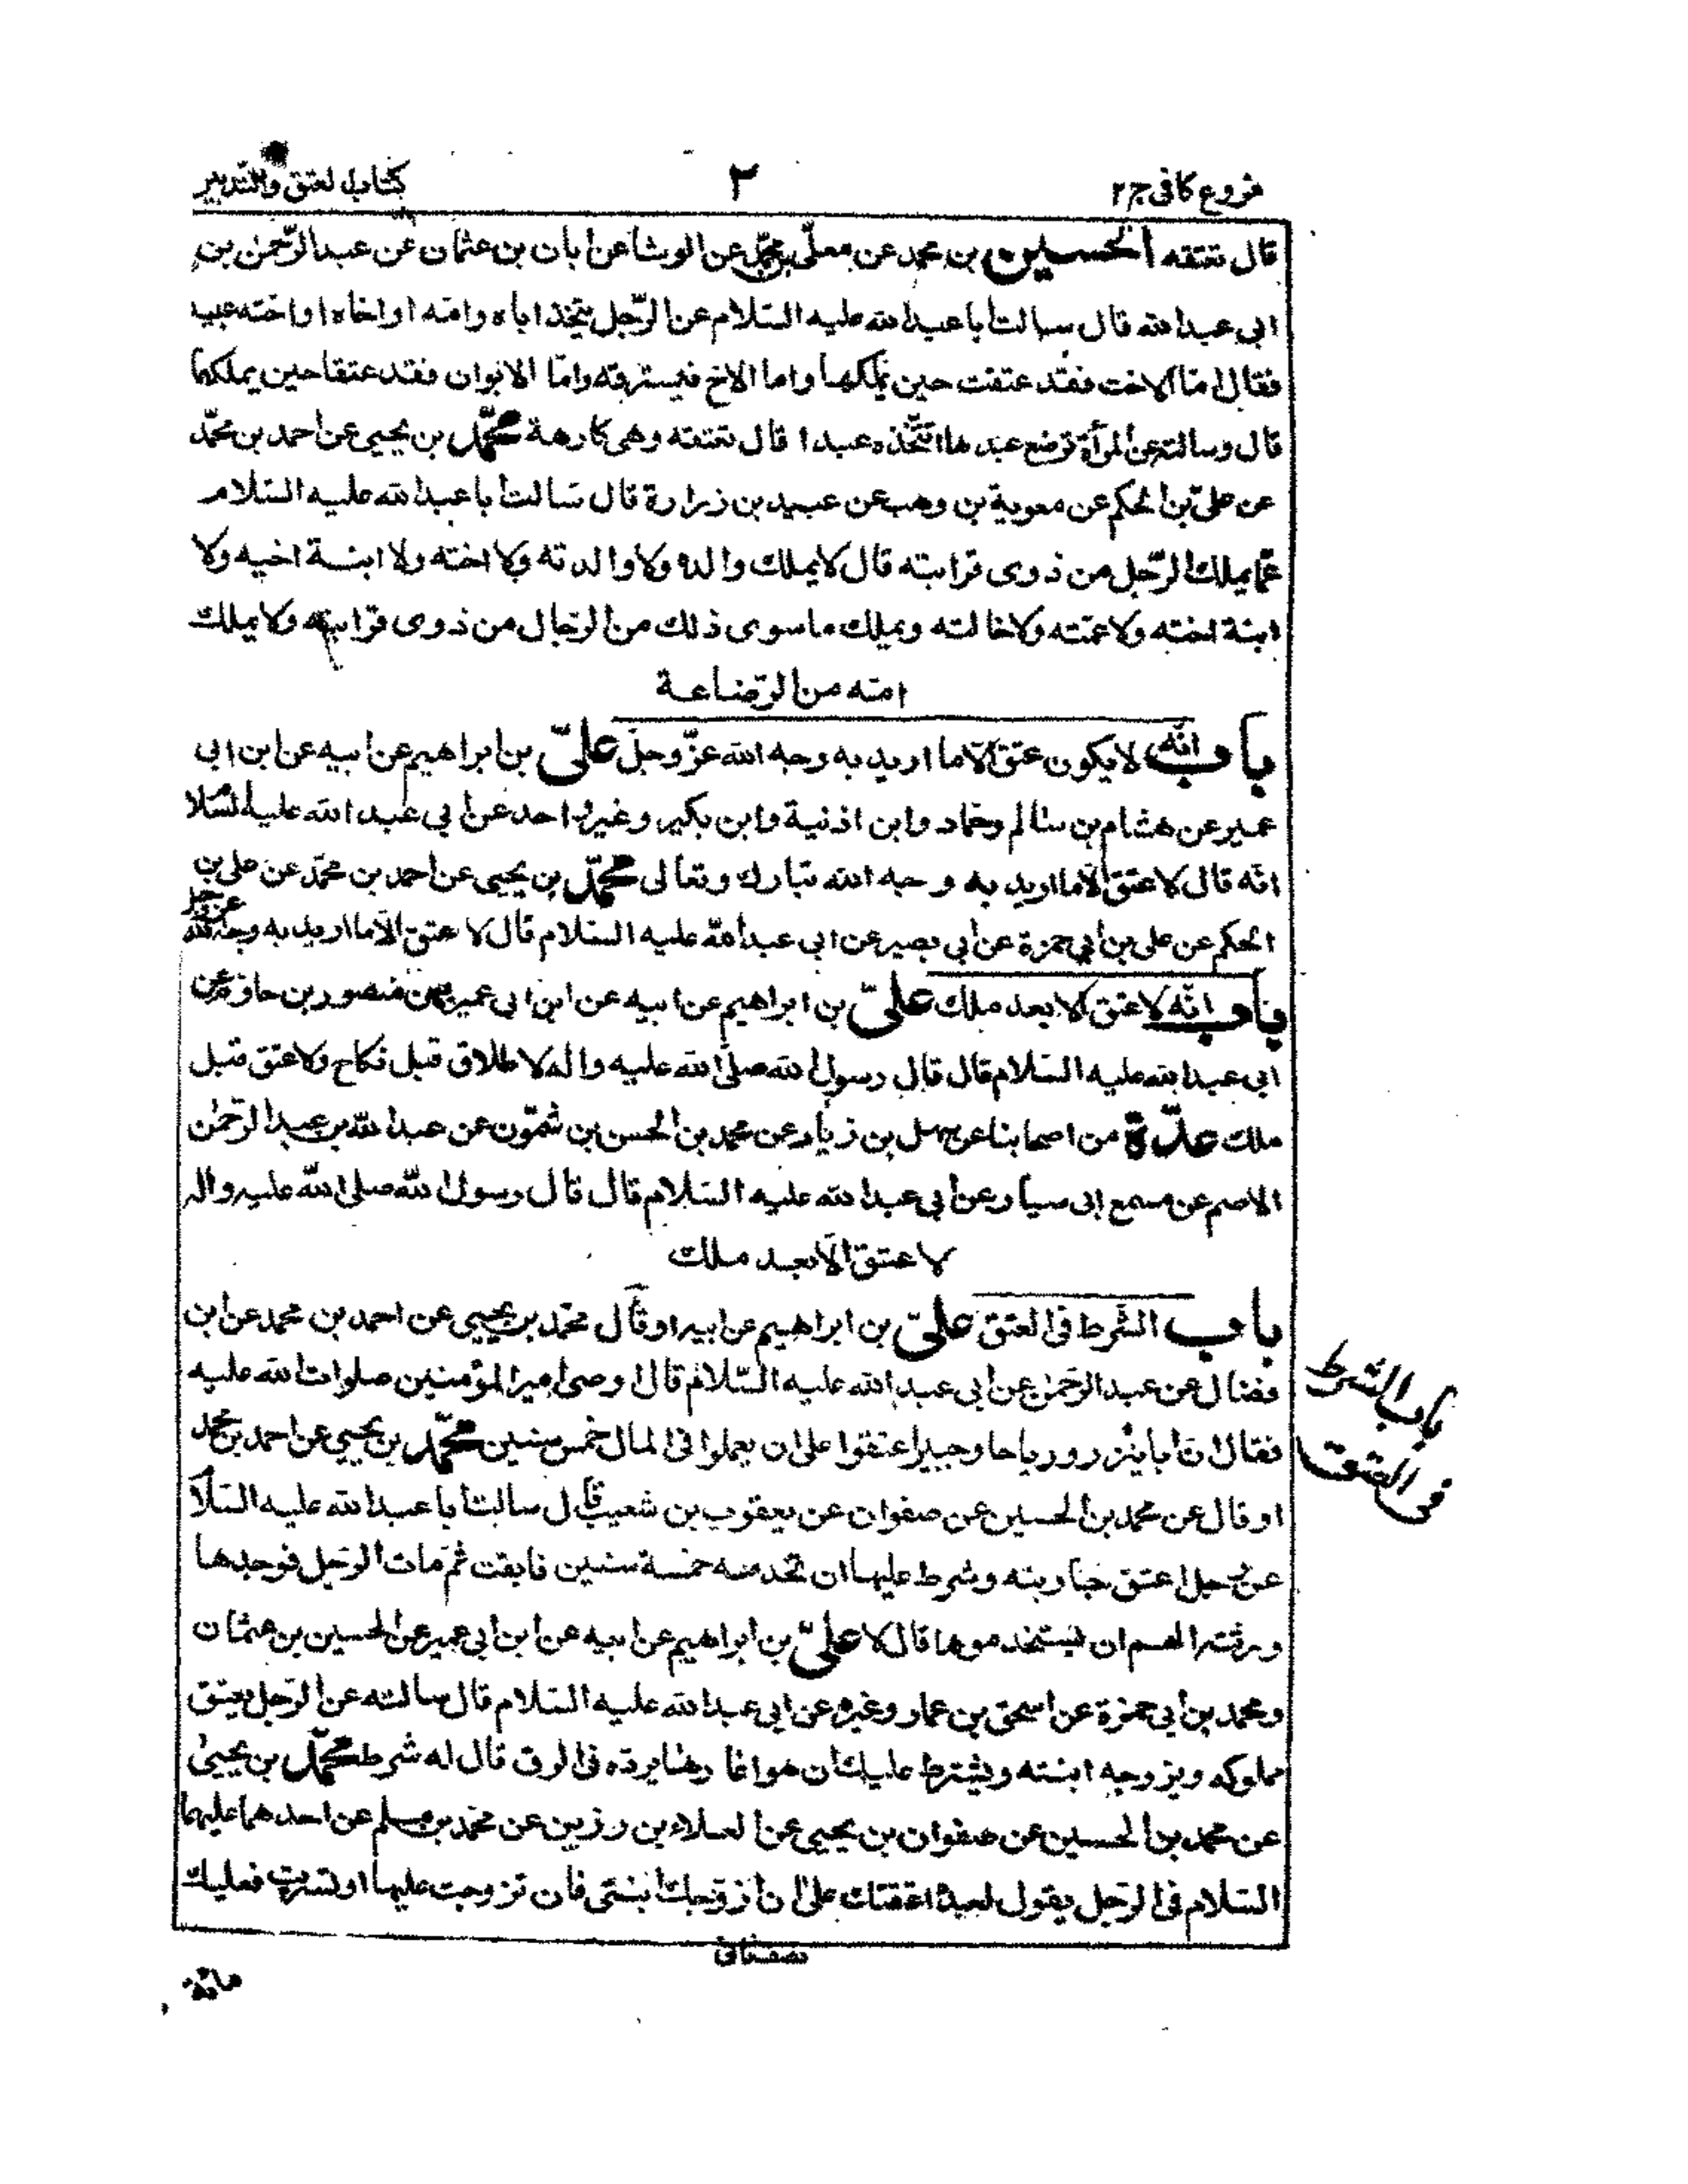 فروع کافی ج ۲
۳
کتاب العتق والتدبیر
قال تعتقه الحسين بن محمد عن معلّى بن محمّد عن الوشا عن ابان بن عثمان عن عبد الرّحمن بن
ابى عبد الله قال سالت ابا عبد الله عليه السّلام عن الرّجل يتخذ اباه وامّه او اخاه او اخته عبيد
فقال امّا الاخت فقد عتقت حين يملكها واما الاخ فيسترقه وامّا الابوان فقد عتقا حين يملكهما
قال وسالته عن المرأة ترضع عبدها اتتّخذه عبدا قال تعتقه وهى كارهة محمّد بن يحيى عن احمد بن محمّد
عن علىّ بن الحكم عن معوية بن وهب عن عبيد بن زرارة قال سالت ابا عبد الله عليه السّلام
عمّا يملك الرّجل من ذوى قرابته قال لا يملك والده ولا والدته ولا اخته ولا ابنة اخيه ولا
ابنة اخته ولا عمّته ولا خالته ويملك ما سوى ذلك من الرّجال من ذوى قرابته ولا يملك
امّه من الرّضاعة
باب انّه لا يكون عتق الّا ما اريد به وجه الله عزّ وجلّ علىّ بن ابراهيم عن ابيه عن ابن ابى
عمير عن هشام بن سالم وحماد وابن اذنية وابن بكير وغير واحد عن ابى عبد الله عليه السّلا
انّه قال لا عتق الّا ما اريد به وجه الله تبارك وتعالى محمّد بن يحيى عن احمد بن محمّد عن على بن
الحكم عن على بن ابى حمزة عن ابى بصير عن ابى عبد الله عليه السّلام قال لا عتق الّا ما اريد به وجه الله
عز وجل
باب انّه لا عتق الا بعد ملك علىّ بن ابراهيم عن ابيه عن ابن ابى عمير عن منصور بن حازم عن
ابى عبد الله عليه السّلام قال قال رسول الله صلّى الله عليه واله لا طلاق قبل نكاح ولا عتق قبل
ملك عدّة من اصحابنا عن سهل بن زياد عن محمد بن الحسن بن شمّون عن عبد الله بن عبد الرّحمن
الاصم عن مسمع ابى سيار عن ابى عبد الله عليه السّلام قال قال رسول الله صلى الله عليه واله
لا عتق الّا بعد ملك
باب الشّرط فى العتق علىّ بن ابراهيم عن ابيه او قال محمّد بن يحيى عن احمد بن محمد عن ابن
فضال عن عبد الرّحمن عن ابى عبد الله عليه السّلام قال اوصى امير المؤمنين صلوات الله عليه
فقال ان ابا نيزر ورياحا وجبيرا عتقوا على ان يعملوا فى المال خمس سنين محمّد بن يحيى عن احمد بن محمد
او قال عن محمد بن الحسين عن صفوان عن يعقوب بن شعيب قال سالت ابا عبد الله عليه السّلا
عن رجل اعتق جاريته وشرط عليها ان تخدمه خمسة سنين فابقت ثمّ مات الرّجل فوجدها
ورثته الهم ان يستخدموها قال لا علىّ بن ابراهيم عن ابيه عن ابن ابى عمير عن الحسين بن عثمان
ومحمد بن ابى حمزة عن اسحق بن عمار وغيره عن ابى عبد الله عليه السّلام قال سالته عن الرّجل يعتق
مملوكه ويزوجه ابنته ويشترط عليه ان هو اغارها يردّه فى الرق قال له شرطه محمّد بن يحيى
عن محمد بن الحسين عن صفوان بن يحيى عن العلاء بن رزين عن محمّد بن مسلم عن احدهما عليهما
السّلام فى الرّجل يقول لعبده اعتقتك على ان ازوّجك ابنتى فان تزوجت عليها او تسريت فعليك
باب الشرط
فى العتق
مائة